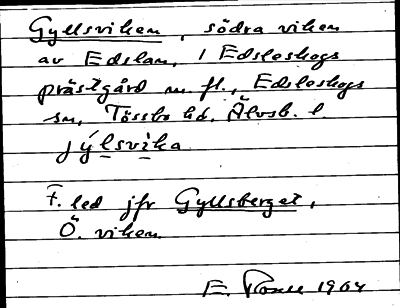 Gyllsviken, södra viken
av Edslan, i Edsleskogs
prästgård m. fl., Edsleskogs
sn, Tössbo hd, Älvsb. l.
jýlsvika
F. led jfr Gyllsberget,
Ö. viken.
E. 1904